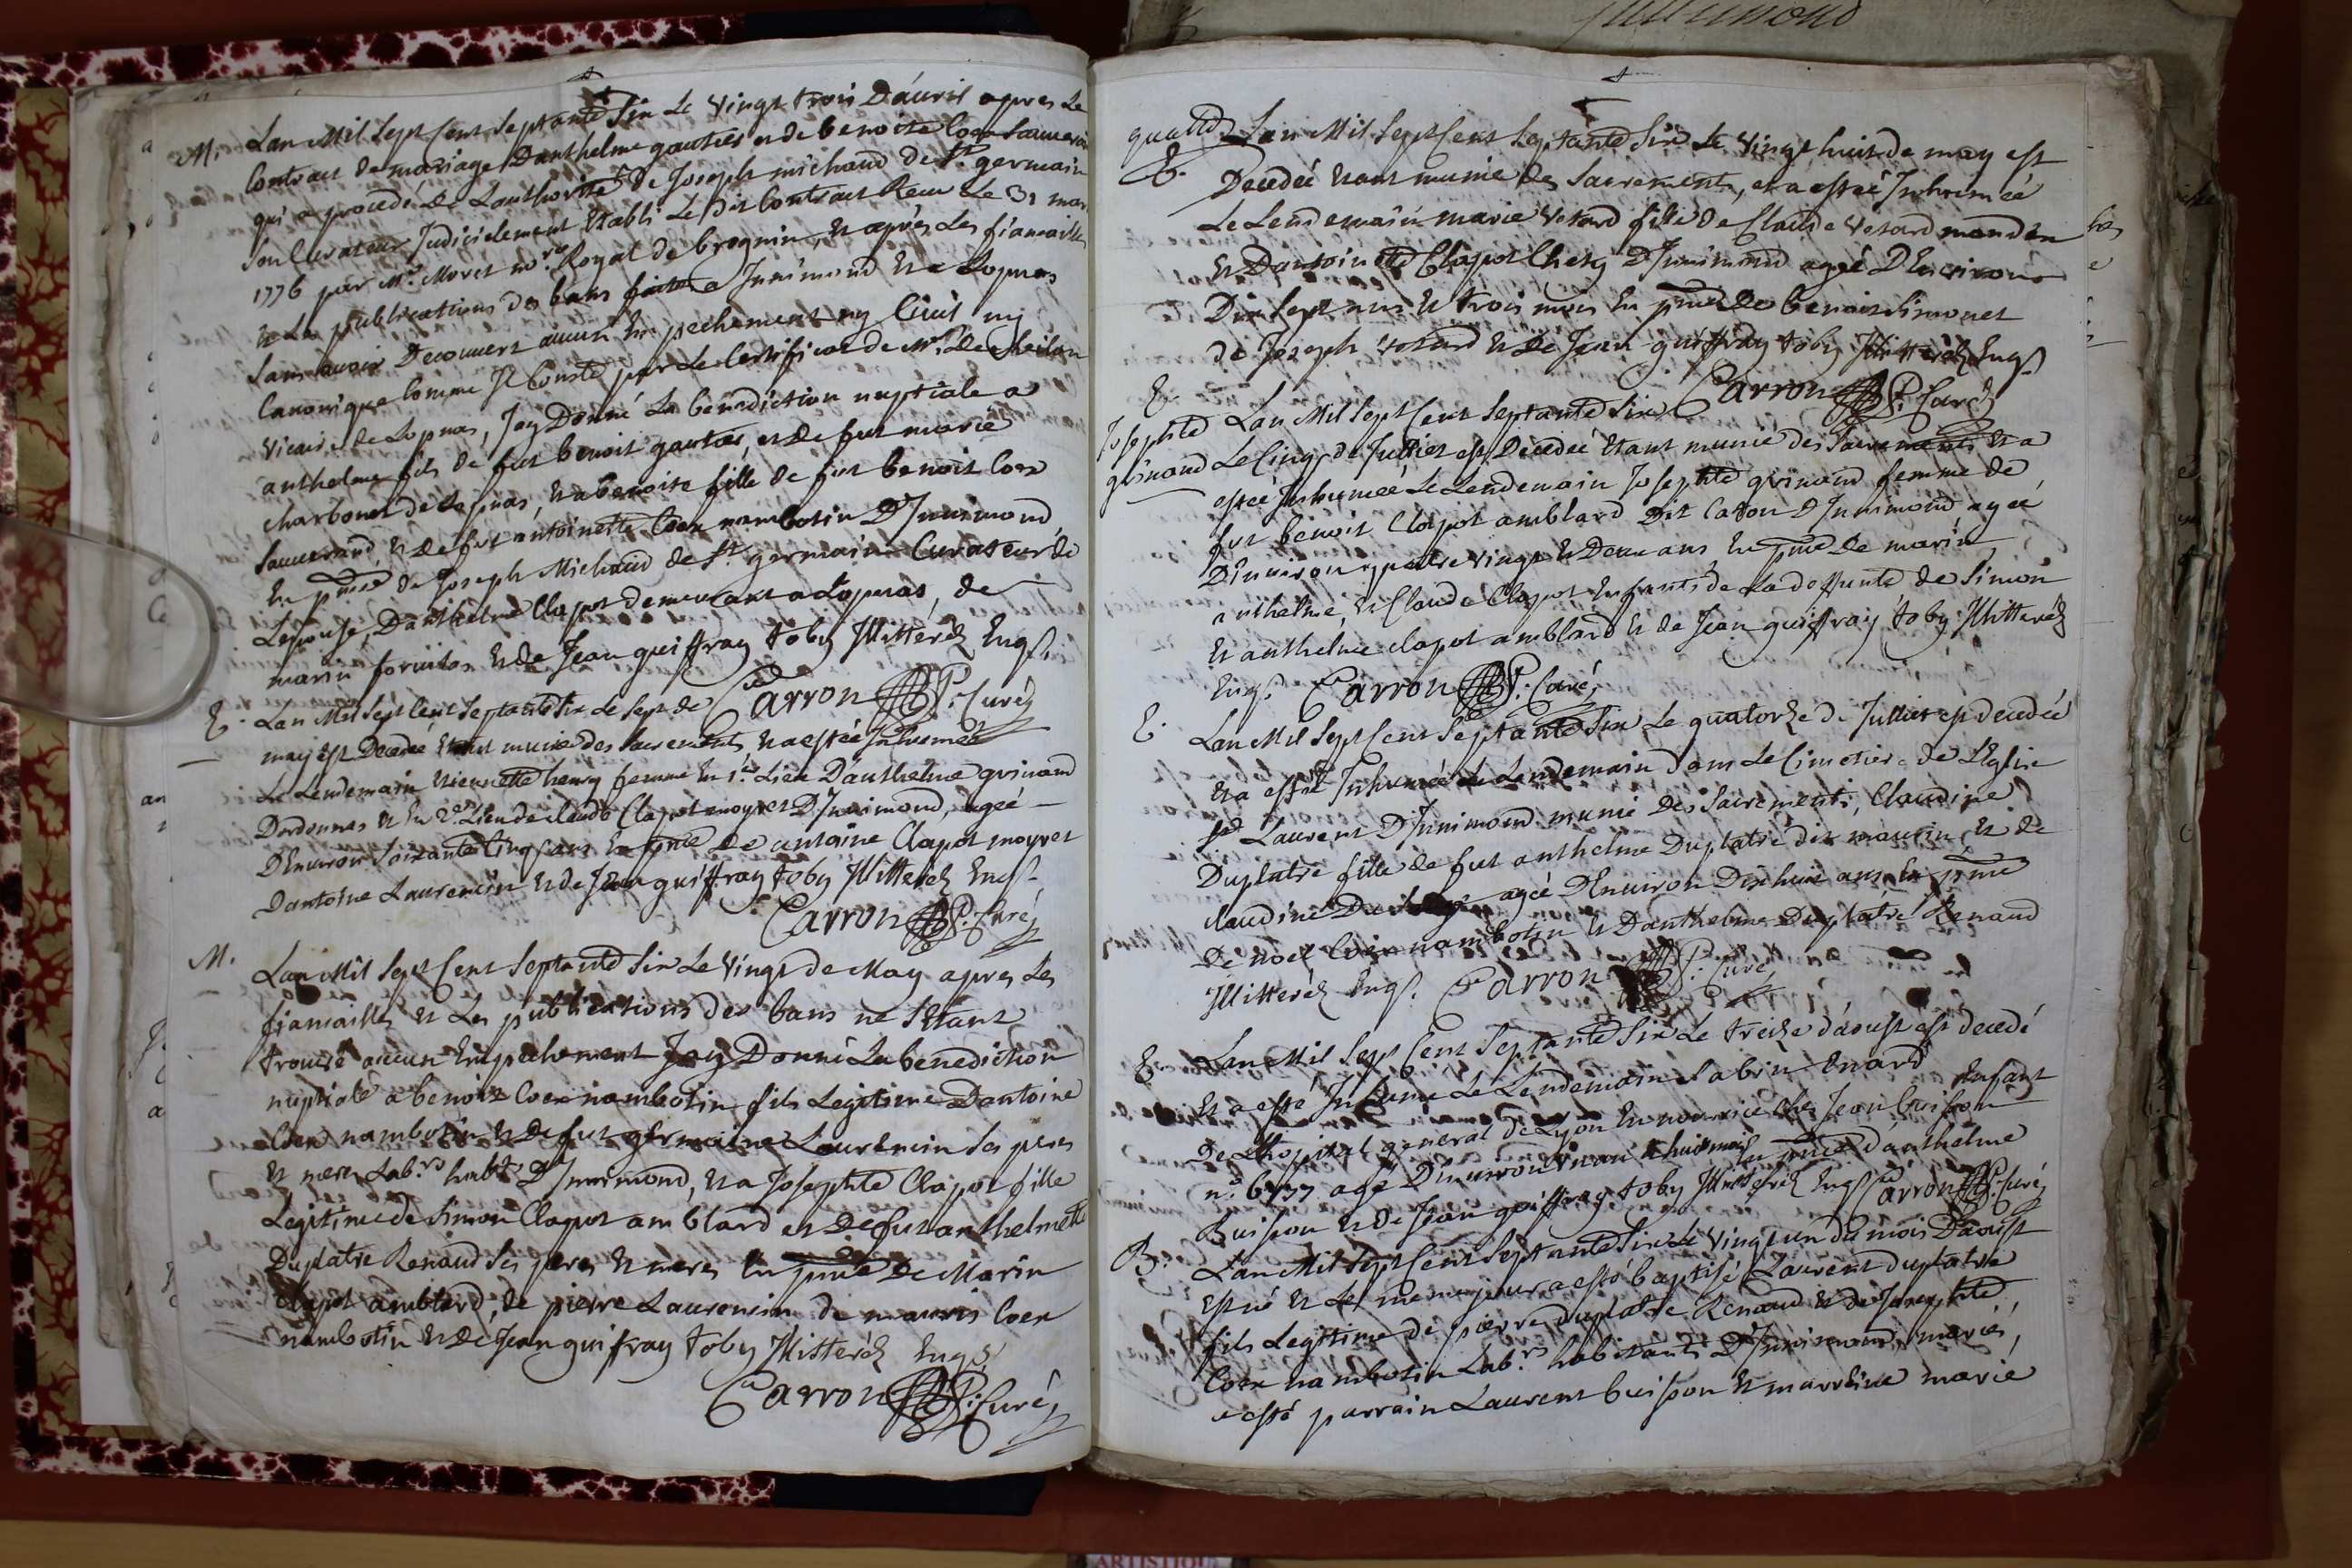 M. Lan Mil Sept Cent Septante Six Le Vingt trois D'auril apres Le
Contract de mariage Danthelme gautier et de benoite Coex Sauueran
qui a procedé de Lauthorité de Joseph michaud de St germain
Son Curateur Judicielement Etabli Le dit Contract Reçu Le 31 mar
1776 par Mr. Moret no.re Royal de brognin, et aprés Les fiamailles
et La publications des bans faites a Innimond et a Lopnas
Sans avoir Decouvert aucun Empechement ny Ciuil ny
Canonique Comme Il Conste par Le Certificat de Mr.
Vicaire de Lopnas, Jay Donné La benediction nuptiale a
anthelme fils de fut benoit gautier, et de fut marie
charbonet de Lopnas, et a benoite fille de fut benoit Coex
Sauuerand et de fut antoinette Coex nambotin D'Innimond
En pnce de Joseph Michaud de St. germain Curateur de
Lepouse, Danthelme Clapot demeurant a Lopnas, de
marin et de Jean guiffray toby Illitteréz Enqs.
Carron P: Curéz
E. Lan Mil Sept Cent Septante Six Le Sept de
may est Decedée Etant munie des Sacrements, et a estée Inhumée
Le Lendemain Etiennette henry femme En 1er Lieu Danthelme grinand
Dordonnas et En 2d. Lieu de claude Clapot moyret D'Innimond, agée
D'Enuiron Soixante Cinq ans En pnce de antoine Clapot moyret
Dantoine Laurencin et de Jean guiffray toby Illitteréz Enqs.
Carron P: Curéz
M. Lan Mil Sept Cent Septante Six Le Vingt de May apres Les
fiamailles et Les publications des bans ne S'Etant
trouué aucun Empechement Jay Donné La benediction
nuptiale a benoit Coex nambotin fils Legitime Dantoine
Coex nambotin et de fut germaine Laurencin Ses peres
et meres Lab.rs habts D'Innimond, et a Josephte Clapot fille
Legitime de Simon Clapot amblard et de fut anthelmette
Duplatre Renaud Ses peres et meres En pnce De Marin
Clapot amblard, de pierre Laurencin de mauris Coex
nambotin et de Jean guiffray toby Illitteréz Enqs
Carron P: Curéz
E. Lan Mil Sept Cent Septante Six Le Vingt huit de may est
Decedée Etant munie des Sacrements, et a estée Inhumée
Le Lendemain marie Vetard fille de Claude Vetard
et Dantoinette Clapot Chez D'Innimond agée D'Enuiron
Dix Sept ans et trois mois En pnce de benoit Simonet
de Joseph Vetard et de Jean guiffray toby Illitteréz Enqs.
Carron P: Curéz
E. Lan Mil Sept Cent Septante Six
Josephte
grinand
Le Cinq de Julliet est Decedée Etant munie des Sacrements et a
estée Inhumée Le Lendemain Josephte grinand femme de
fut benoit Clapot amblard Dit Caton D'Innimond agée
D'Enuiron quatre Vingt et Deux ans En pnce De marin
anthelme, et Claude Clapot Enfants de La deffunte de Simon
et anthelme clapot amblard et de Jean guiffray toby Illitteréz
Enqs. Carron P: Curéz
E. Lan Mil Sept Cent Septante Six Le quatorze de Julliet est decedée
et a estée Inhumée Le Lendemain dans Le Cimetiere de L'Eglise
St Laurent D'Innimond munie des Sacrements, Claudine
Duplatre fille de fut anthelme Duplatre dit maurin et de
claudine agée D'Enuiron Dix huit ans En pnce
De noel Coex nambotin et Danthelme Duplatre Renaud
Illitteréz Enqs. Carron P: Curé,
E. Lan Mil Sept Cent Septante Six Le treize d'aoust est decedé
et a esté Inhumé Le Lendemain Sabin Enard Enfant
De Lhopital general de Lyon En nourrice chez Jean buisson
agé D'Enuiron un an et huit mois En pnce d'anthelme
Buisson et de Jean guiffray toby Illitteréz Enqs Carron P: Curéz
B. Lan Mil Sept Cent Septante Six Le Vingt un du mois D'aoust
est né et Le meme jour a esté baptisé Laurent duplatre
fils Legitime de pierre duplatre Renaud et de Josephte
Coex nambotin Lab.rs habitants D'Innimond mariés,
a esté parrain Laurent buisson et marreine marie